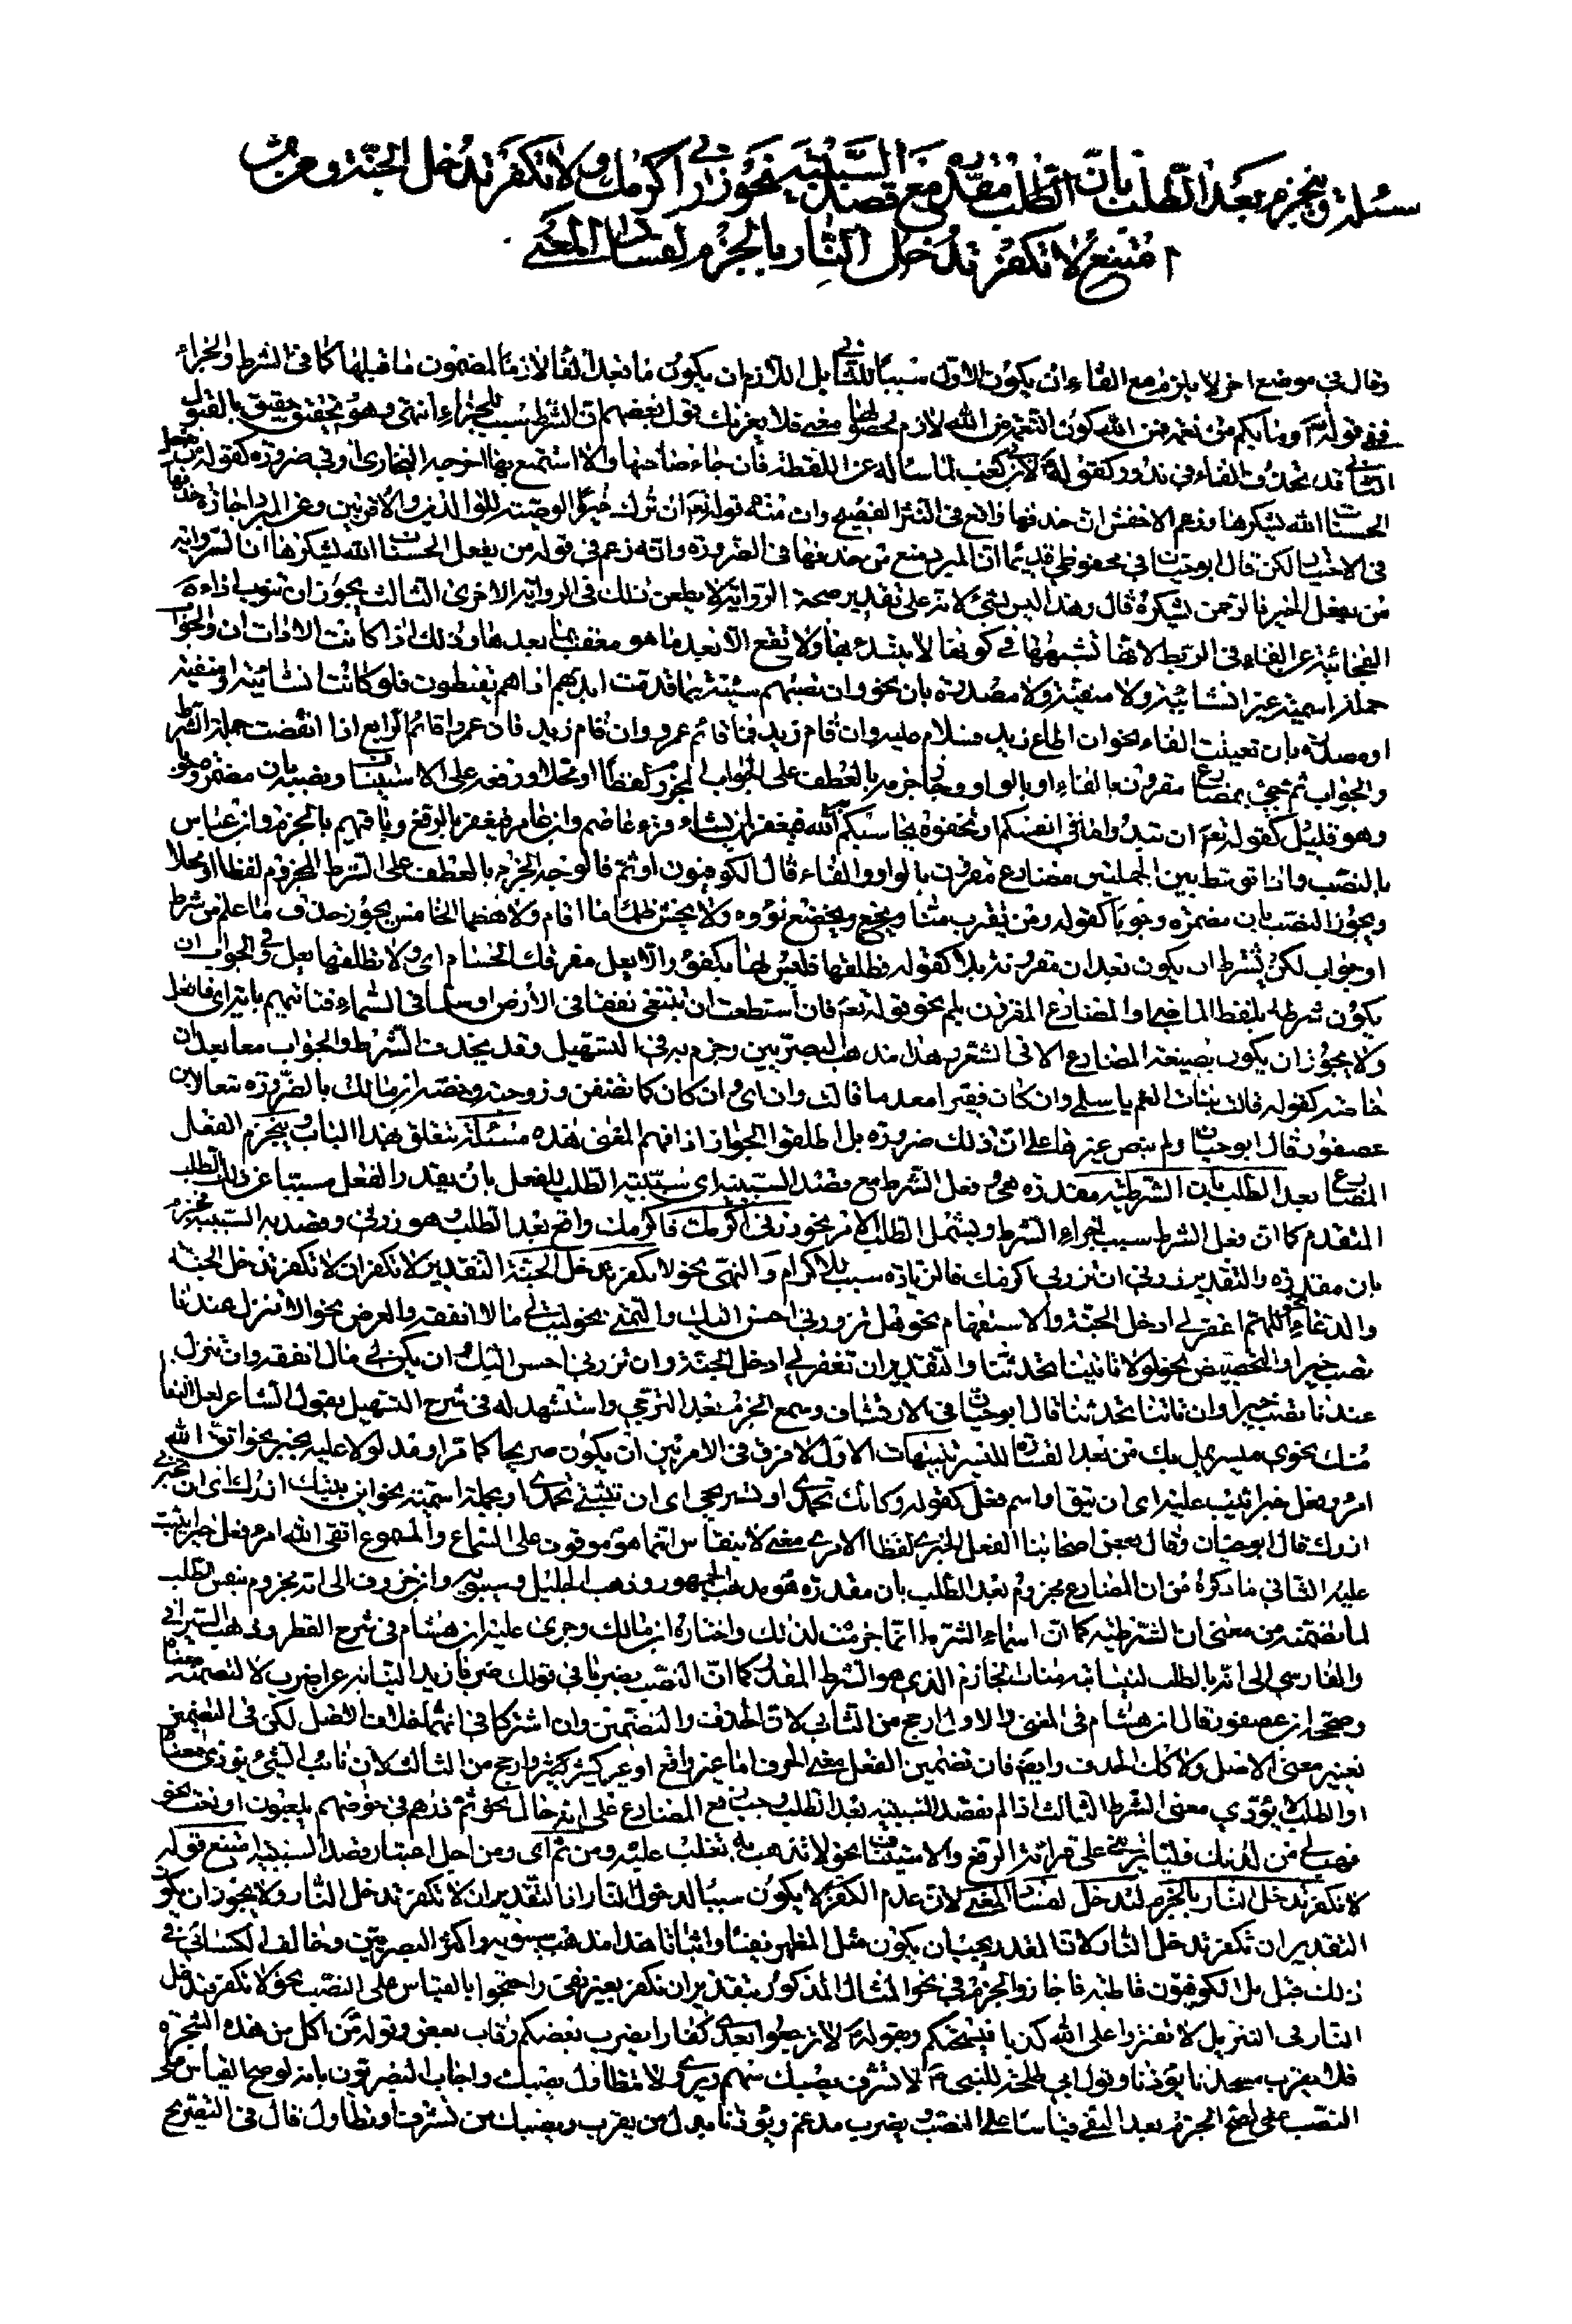 مسئلة وينجزم بعد الطلب بان مقدرة مع قصد السببية نحو زرني اكرمك ولا تكفر تدخل الجنة ومن ثم
امتنع لا تكفر تدخل النار بالجزم لفساد المعنى
وقال في موضع اخر لا يلزم مع الفاء ان يكون الاول سببا للثاني بل اللازم ان يكون ما بعد الفاء لازما لمضمون ما قبلها كما في الشرط والجزاء
ففي قوله تعالى وما بكم من نعمة فمن الله كون النعمة من الله لازم لحصولها معنى فلا يغرنك قول بعضهم ان الشرط سبب للجزاء انتهى وهو تحقيق حقيق بالقبول
الثاني قد تحذف الفاء في ندور كقوله لابي بن كعب لما ساله عن اللقطة فان جاء صاحبها والا استمتع بها اخرجه البخاري او في ضرورة كقوله من يفعل
الحسنات الله يشكرها وزعم الاخفش ان حذفها واقع في النثر الفصيح وان منه قوله تعالى ان ترك خيرا الوصية للوالدين والاقربين وعن المبرد اجازة حذفها
في الاختيار لكن قال ابوحيان في محفوظي قديما ان المبرد منع من حذفها في الضرورة وانه زعم في قوله من يفعل الحسنات الله يشكرها ان الرواية
من يفعل الخير فالرحمن يشكره قال وهذا ليس بشيء لانه على تقدير صحة الرواية لا يطعن ذلك في الرواية الاخرى الثالث يجوز ان تنوب اذا
الفجائية عن الفاء في الربط لانها تشبهها في كونها لا يبتدء بها ولا تقع الا بعد ما هو معقب بما بعدها وذلك اذا كانت الاداة ان والجواب
جملة اسمية غير انشائية ولا منفية ولا مصدرة بان نحو وان تصبهم سيئة بما قدمت ايديهم اذا هم يقنطون فلو كانت انشائية او منفية
او مصدرة بان تعينت الفاء نحو ان اطاع زيد فسلام عليه وان قام زيد فما قائم عمرو وان قام زيد فان عمروا قائم الرابع اذا انقضت جملة الشرط
والجواب ثم تجئ بمضارع مقرون بالفاء او بالواو وجاز جزمه بالعطف على الجواب المجزوم لفظا او محلا ورفعه على الاستيناف ونصبه بان مضمرة وجوبا
وهو قليل كقوله تعالى ان تبدوا ما في انفسكم او تخفوه يحاسبكم به الله فيغفر لمن يشاء قرء عاصم وابن عامر فيغفر بالرفع وباقيهم بالجزم وابن عباس
بالنصب واذا توسط بين الجملتين مضارع مقرون بالواو والفاء قال الكوفيون او ثم فالوجه الجزم بالعطف على الشرط المجزوم لفظا او محلا
ويجوز النصب بان مضمرة وجوبا كقوله ومن يقترب منا ويخضع نؤوه ولا يخش ظلما ما اقام ولا هضما الخامس يجوز حذف ما علم من شرط
او جواب لكن يشترط ان يكون بعد ان مقرونة بلا كقوله فطلقها فلست لها بكفو والا يعل مفرقك الحسام اي ولا تطلقها يعل وفي الجواب ان
يكون شرطه بلفظ الماضي او المضارع المقرون بلم نحو قوله تعالى فان استطعت ان تبتغي نفقا في الارض او سلما في السماء فتاتيهم باية اي فافعل
ولا يجوز ان يكون بصيغة المضارع الا في الشعر هذا مذهب البصريين وجزم به في التسهيل وقد يحذف الشرط والجواب معا بعد ان
خاصة كقوله قالت بنات العم يا سلمى وان كان فقيرا معدما قالت وان اي وان كان كما تصفن زوجته وخصه ابن مالك بالضرورة تبعا لابن
عصفور قال ابوحيان ولم ينص غيرهما على ان ذلك ضرورة بل اطلقوا الجواز اذا فهم المعنى هذه مسئلة تتعلق بهذا الباب وينجزم الفعل
المضارع بعد الطلب بان الشرطية مقدرة هي وفعل الشرط مع قصد السببية اي سببية الطلب للفعل بان يقدر الفعل مسببا عن ذلك الطلب
المتقدم كما ان فعل الشرط سبب لجزاء الشرط ويشمل الطلب الامر نحو زرني اكرمك فاكرمك واقع بعد الطلب وهو زرني وقصد به السببية فجزم
بان مقدرة والتقدير زرني ان تزرني اكرمك فالزيادة سبب للاكرام والنهي نحو لا تكفر تدخل الجنة التقدير لا تكفر ان لا تكفر تدخل الجنة
والدعاء نحو اللهم اغفر لي ادخل الجنة والاستفهام نحو هل تزورني احسن اليك والتمني نحو ليت لي مالا انفقه والعرض نحو الا تنزل عندنا
تصب خيرا والتحضيض نحو لولا تاتينا تحدثنا والتقدير ان تغفر لي ادخل الجنة وان تزرني احسن اليك وان يكن لي مال انفقه وان تنزل
عندنا تصب خيرا وان تاتنا تحدثنا قال ابوحيان في الارتشاف وسمع الجزم بعد الترجي واستشهد له في شرح التسهيل بقول الشاعر لعل التفاتا
منك نحوي ميسر يمل بك من بعد القساوة لليسر تنبيهات الاول لا فرق في الامر بين ان يكون صريحا كما مر او مدلولا عليه بخبر نحو اتقى الله
امرء وفعل خيرا يثب عليه اي ان يتق او اسم فعل كقوله مكانك تحمدي او تستريحي اي ان تثبتي تحمدي او بجملة اسمية نحو اين بيتك ازرك اي ان تخبرني
ازرك قال ابوحيان وقال بعض اصحابنا الفعل الخبري لفظا الامري معنى لا ينقاس انما هو موقوف على السماع والمسموع اتقى الله امرء فعل خيرا يثب
عليه الثاني ما ذكره من ان المضارع مجزوم بعد الطلب بان مقدرة هو مذهب الجمهور وذهب الخليل وسيبويه وابن خروف الى انه مجزوم بنفس الطلب
لما تضمنه من معنى ان الشرطية كما ان اسماء الشرط انما جزمت لذلك واختاره ابن مالك وجرى عليه ابن هشام في شرح القطر وذهب السيرافي
والفارسي الى انه بالطلب لنيابته مناب الجازم الذي هو الشرط المقدر كما ان النصب بضربا في قولك ضربا زيدا لنيابته عن اضرب لا لتضمنه معناه
وصححه ابن عصفور قال ابن هشام في المغنى والاول ارجح من الثاني لان الحذف والتضمين وان اشتركا في انهما خلاف الاصل لكن في التضمين
تغيير معنى الاصل ولا كذلك الحذف وايضا فان تضمين الفعل معنى الحرف اما غير واقع او غير كثير وارجح من الثالث لان نائب الشيء يؤدي معناه
او الطلب لا يؤدي معنى الشرط الثالث اذا لم يقصد السببية بعد الطلب وجب رفع المضارع على انه حال نحو ثم ذرهم في خوضهم يلعبون او نعت نحو
فهب لي من لدنك وليا يرثني على قرائة الرفع والاستيناف نحو لا تذهب به تغلب عليه ومن ثم اي ومن اجل اعتبار قصد السببية امتنع قوله
لا تكفر تدخل النار بالجزم لتدخل لفساد المعنى لان عدم الكفر لا يكون سببا لدخول النار اذ التقدير ان لا تكفر تدخل النار ولا يجوز ان يكون
التقدير ان تكفر تدخل النار لان المقدر يجب ان يكون مثل المظهر نفيا واثباتا هذا مذهب سيبويه واكثر البصريين وخالف الكسائي في
ذلك قيل بل الكوفيون قاطبة فاجازوا الجزم في نحو المثال المذكور بتقدير ان تكفر بغير نفي واحتجوا بالقياس على النصب نحو لا تكفر تدخل
النار في التنزيل لا تفتروا على الله كذبا فيسحتكم وبقوله لا ترجعوا بعدي كفارا يضرب بعضكم رقاب بعض وقوله من اكل من هذه الشجرة
فلا يقرب مسجدنا يؤذنا وقول ابي طلحة للنبي لا تشرف يصبك سهم ويروى لا تتطاول يصبك واجاب البصريون بانه لو صح القياس على
النصب على لصح الجزم بعد النفي قياسا على النصب ويضرب مدغم ويؤذنا مبدل من يقرب ويصبك من تشرف او تطاول قال في التصريح